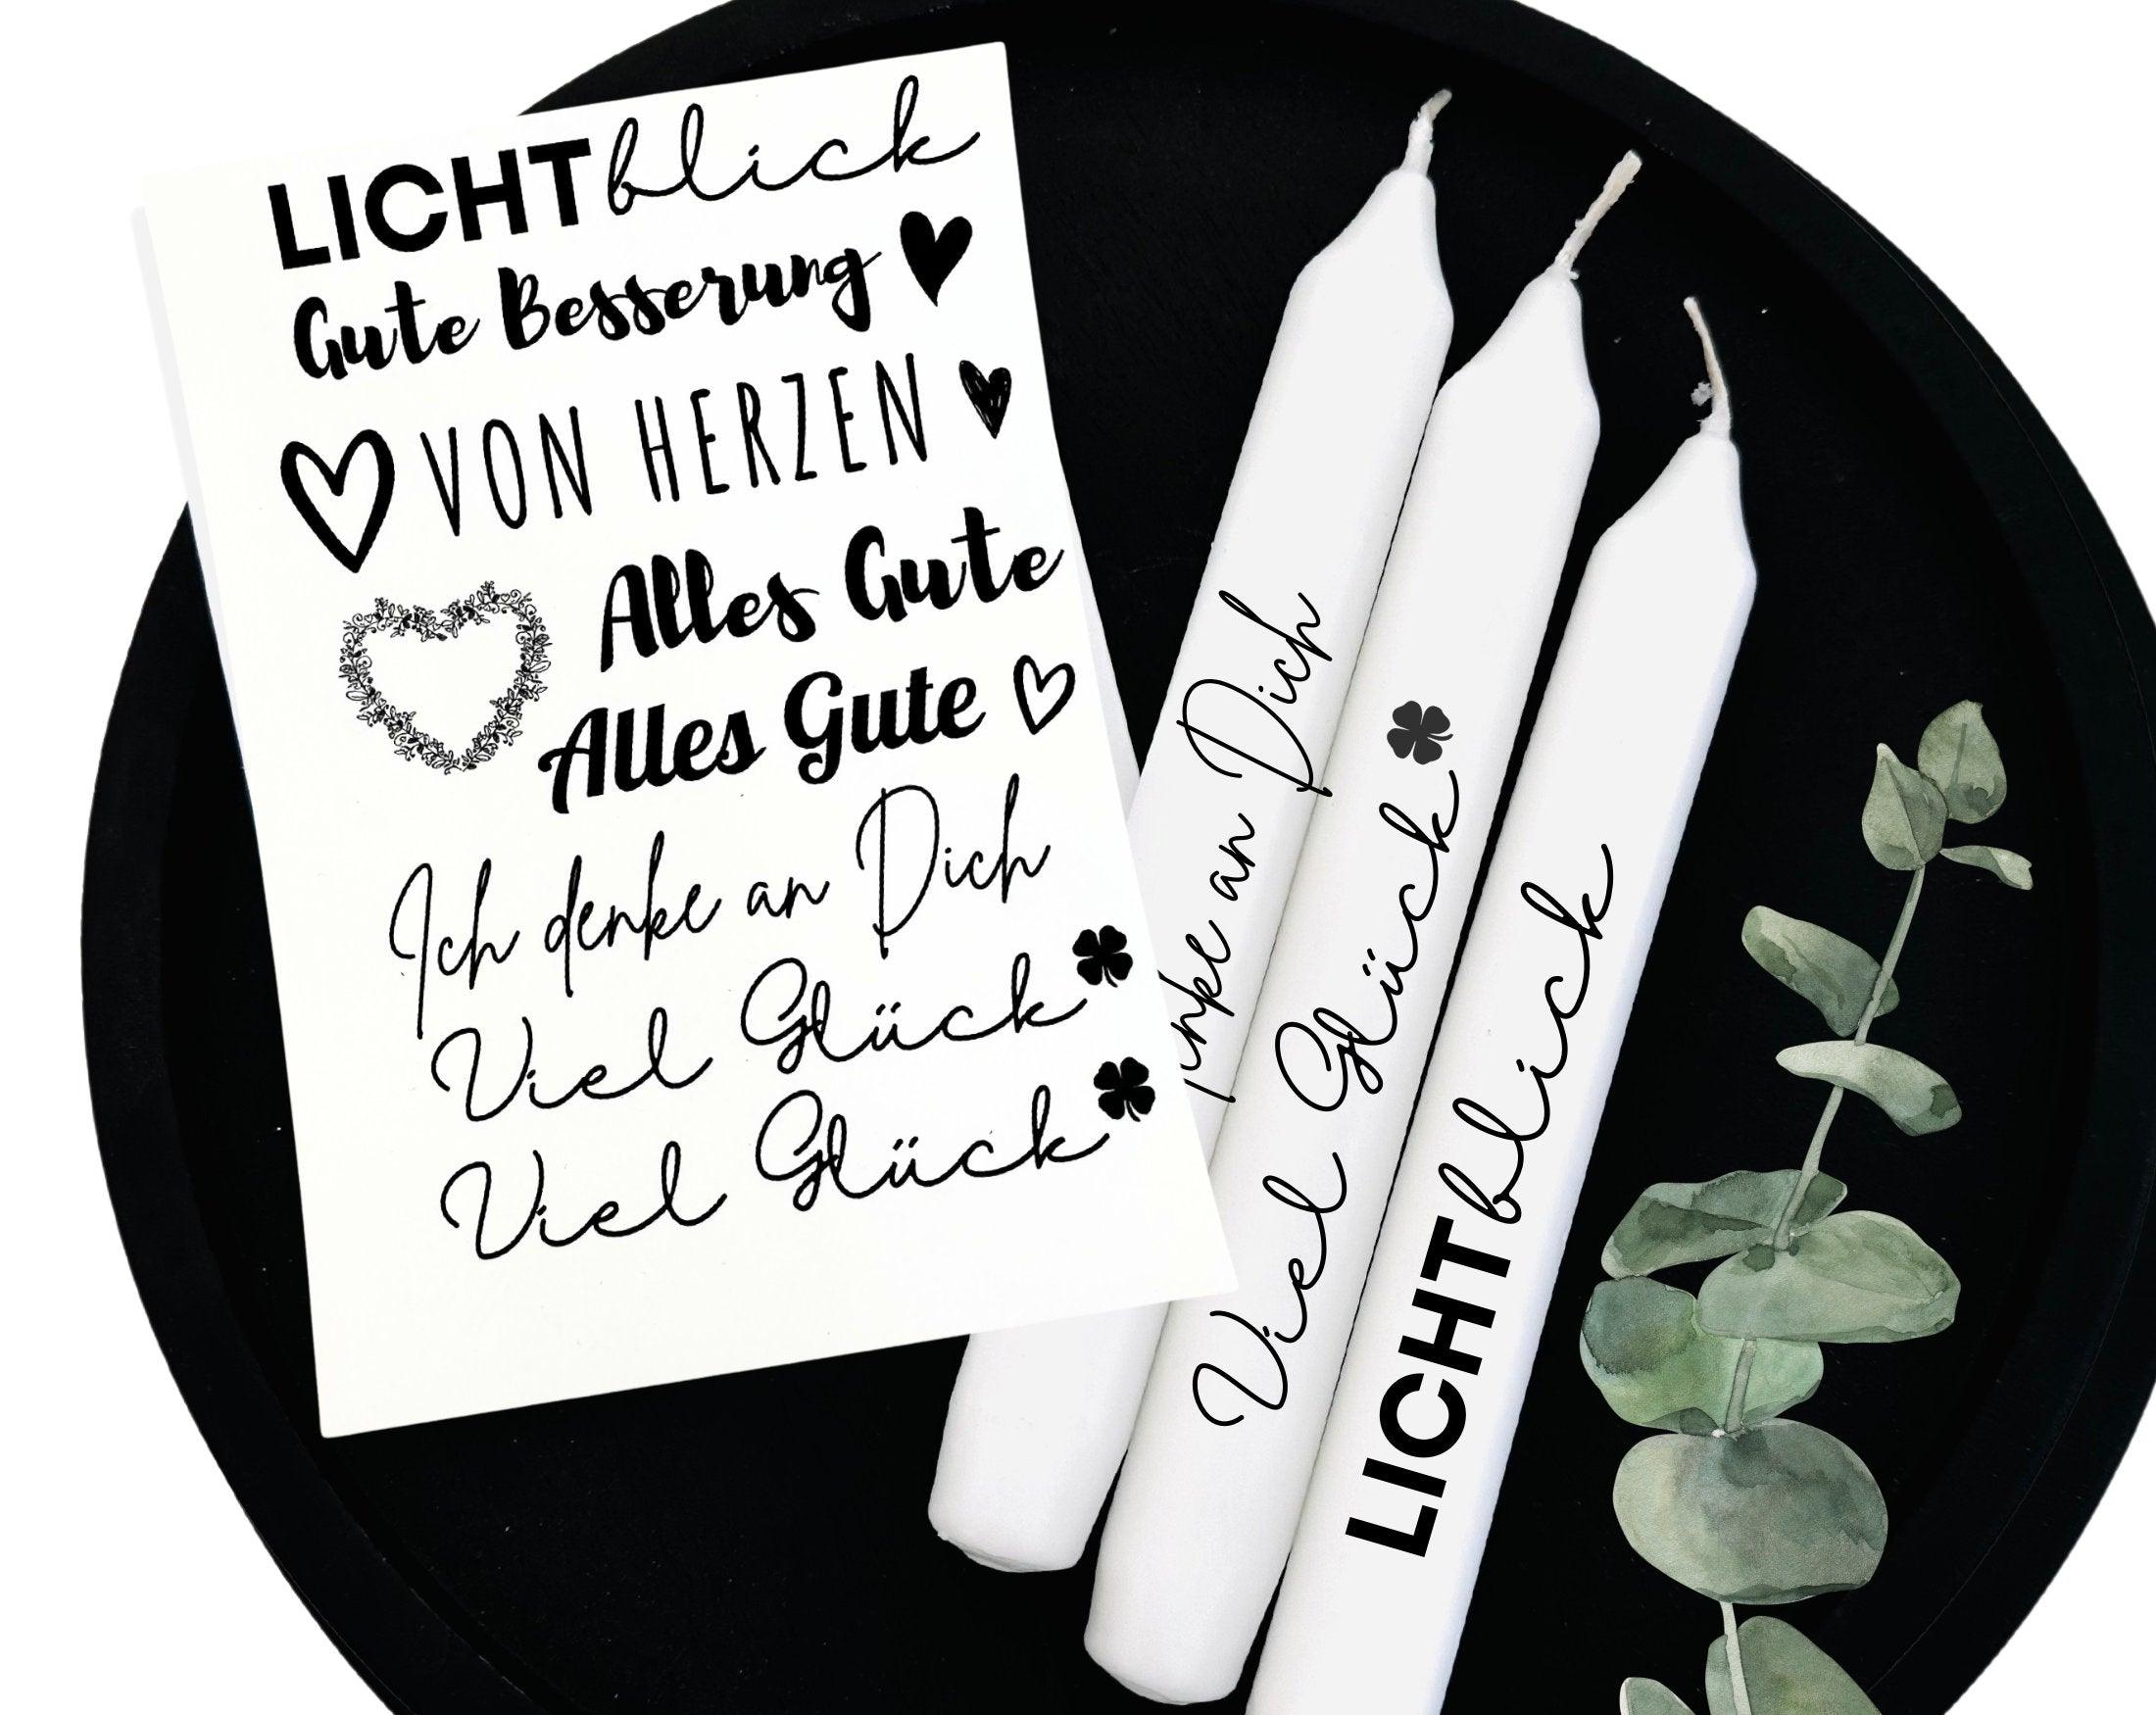 LICHTblick
Gute Besserung
VON HERZEN
Alles Gute
Alles Gute
Ich denke an Dich
Viel Glück
Viel Glück
an Dich
Viel Glück
LICHTblick